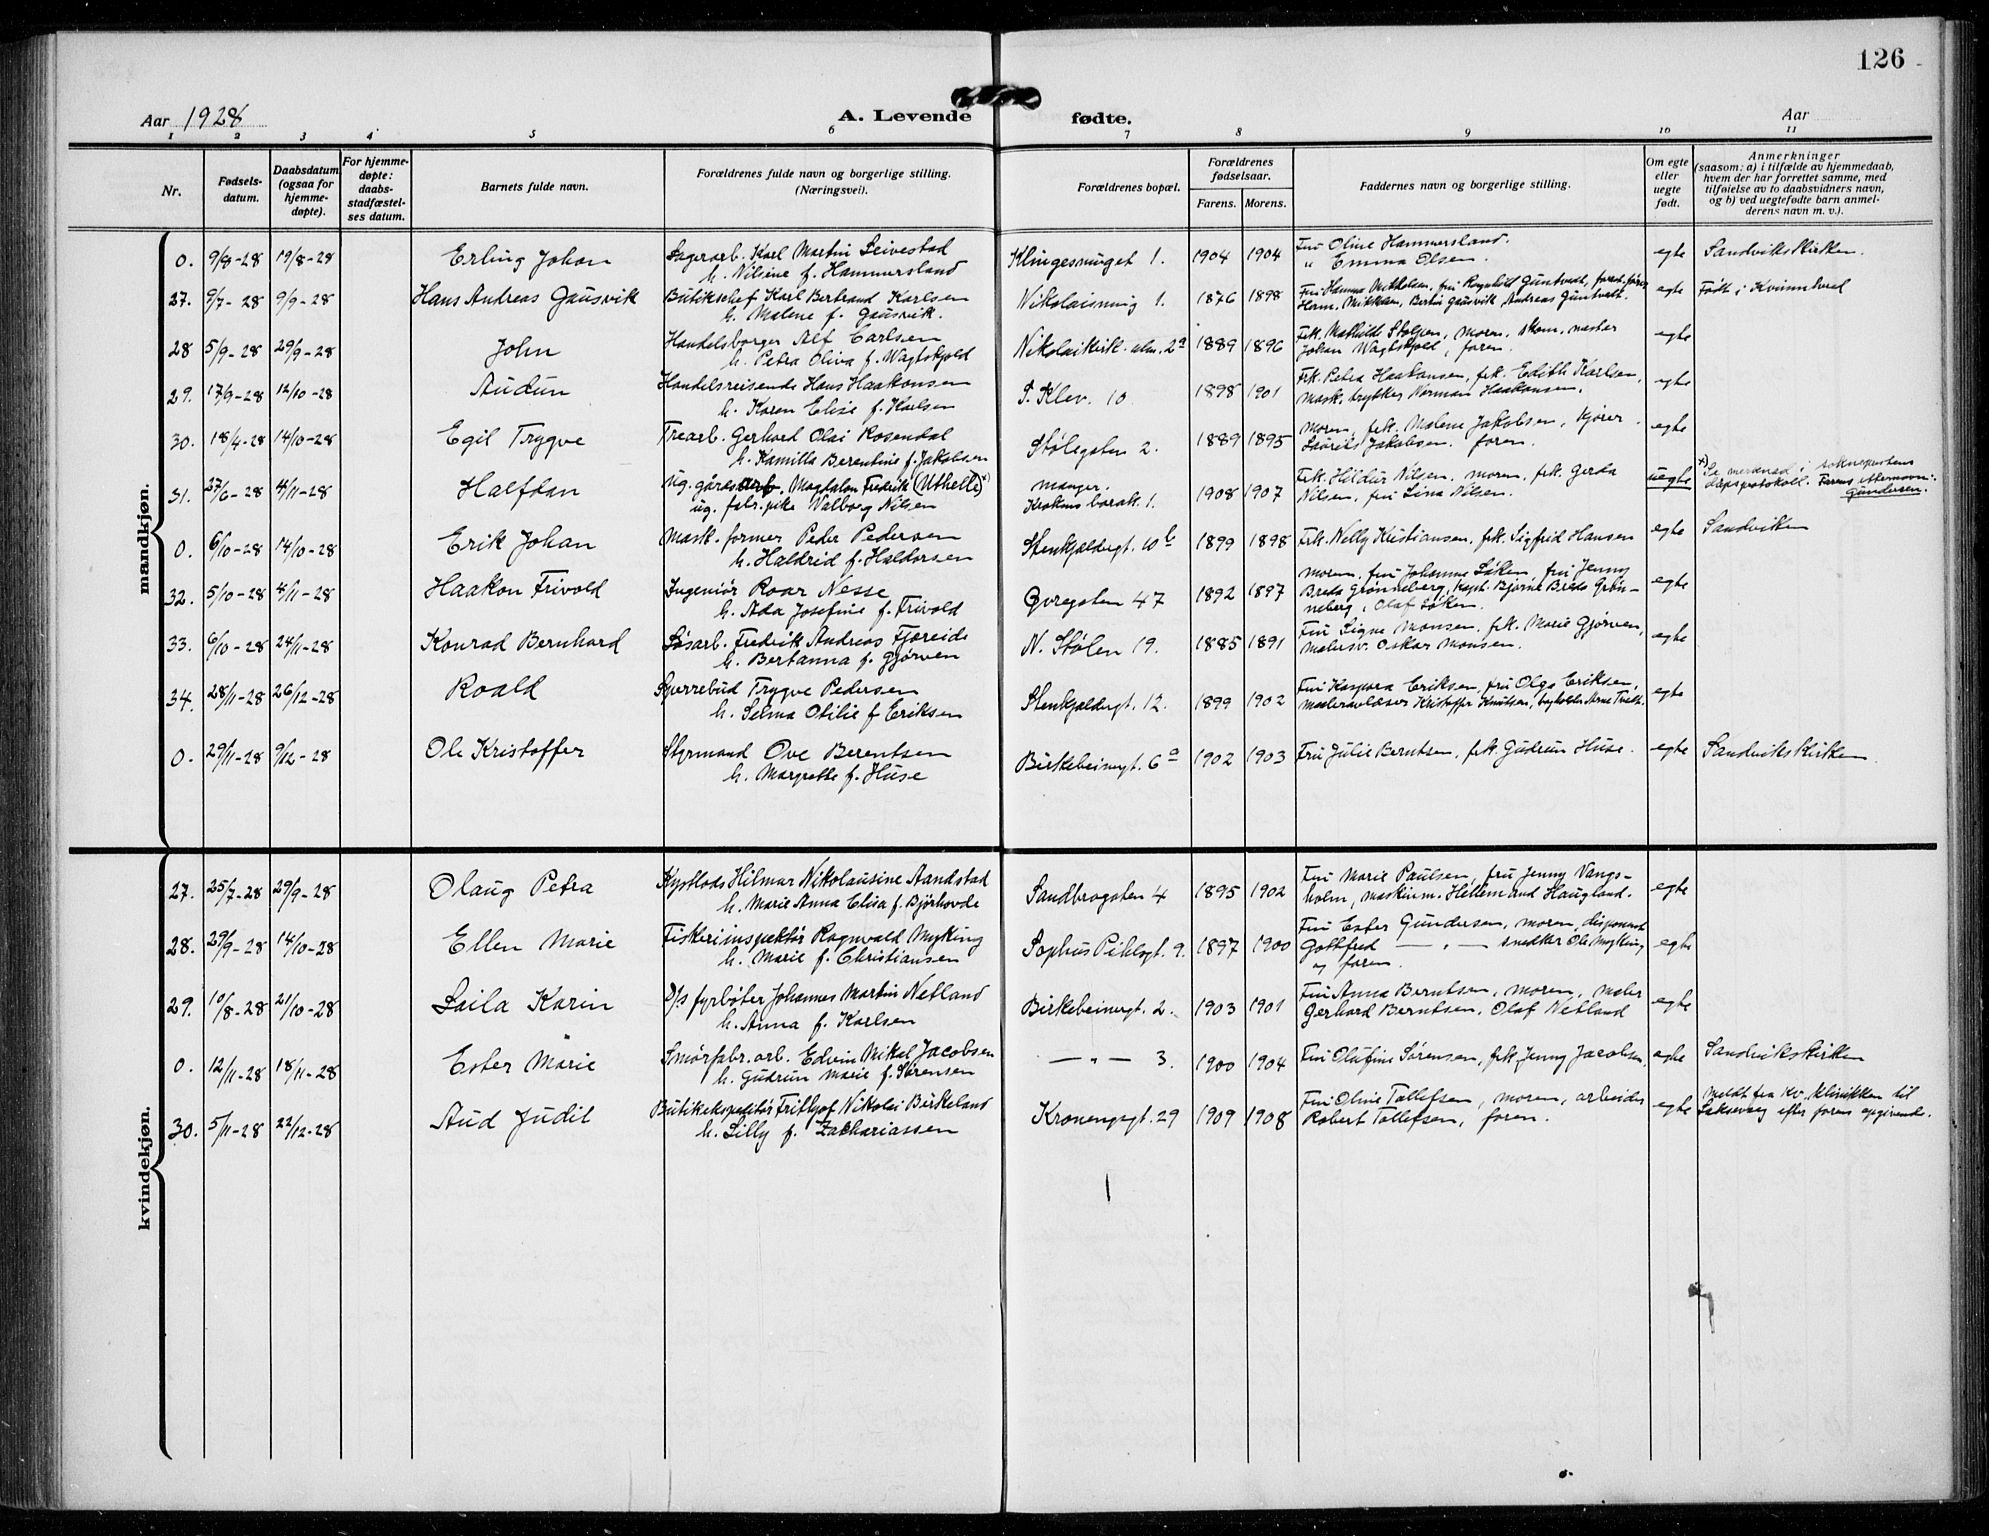 126
Aar 1928
A. Levende fødte.
Aar
1 2 3 4 5 6 7 8 9 10 11
Nr.
Fødsels-
datum.
Daabsdatum
(ogsaa for
hjemme-
døpte).
For hjemme-
døpte:
daabs-
stadfæstel-
ses datum.
Barnets fulde navn.
Forældrenes fulde navn og borgerlige stilling.
(Næringsvei).
Forældrenes bopæl.
Forældrenes
fødselsaar.
Farens. Morens.
Faddernes navn og borgerlige stilling.
Om egte
eller
uegte
født.
Anmerkninger
(saasom: a) i tilfælde av hjemmedaab,
hvem der har forrettet samme, med
tilføielse av to daabsvidners navn,
og b) ved uegtefødte barn anmel-
derens navn m. v.).
mandkjøn.
0. 9/8-28 19/8-28 Erling Johan Lagerarb. Karl Martin Leivestad Klingesmuget 1. 1904 1904 Fru Oline Hammersland. egte Sandvikskirken.
h. Nilsine f. Hammersland " Emma Olsen.
27. 9/7-28 9/9-28 Hans Andreas Gausvik Butikschef Karl Bertrand Karlsen Nikolaismug 1. 1876 1898 egte Født i Kvinnherad
h. Malene f. Gausvik.
28 5/9-28 29/9-28 John Handelsborger Alf Carlsen Nikolaikirk. alm. 2a 1889 1896 Frk. Mathilde Stolpen, moren, skom. mester egte
h. Petra Oliva f. Wagtskjold Johan Wagtskjold, faren.
29. 17/9-28 12/10-28 Audun Handelsreisende Hans Haakonsen S. Klev. 10 1898 1901 Frk. Petra Haakonsen, frk. Edith Karlsen, egte
h. Karen Elise f. Karlsen mask. trykker Norman Haakonsen.
30. 18/4-28 14/10-28 Egil Trygve Trearb. Gerhard Olai Rosendal Stølegaten 2. 1889 1895 moren, frk. Malene Jakobsen, kjører egte
h. Kamilla Berentine f. Jakobsen Laurits Jakobsen. faren.
31. 27/6-28 4/11-28 Halfdan Ug. gårdsarb. Magdalon Fredrik (Uthelle)x) manger. 1908 1907 Frk. Hildur Nilsen, moren, frk. Gerda uegte x) Se merknad i soknepresten
ug. fabr. pike Valborg Nilsen Krohnes barak. 1. Nilsen, fru Lina Nilsen. dåpsprotokoll. Farens etternavn:
Gundersen.
0. 6/10-28 14/10-28 Erik Johan Mask. former Peder Pedersen Stenkjeldergt. 10b 1899 1898 Frk. Nelly Kristiansen, frk. Sigfrid Hansen egte Sandviken
h. Haldrid f. Haldorsen
32. 5/10-28 4/11-28 Haakon Frivold Ingeniør Roar Nesse Øvregaten 47 1892 1897 moren, fru Johanna Løken, fru Jenny egte
h. Ada Josefine f. Frivold Breda Grønneberg, kapt. Bjørne Breda Grøn-
neberg, Olaf Løken.
33. 6/10-28 24/11-28 Konrad Bernhard Løsarb. Fredrik Andreas Fjæreide N. Stølen 19. 1885 1891 Fru Signe Monsen, frk. Marie Gjørven, egte
h. Bertanna f. Gjørven malersv. Oskar Monsen.
34. 28/11-28 26/12-28 Roald Sperrebud Trygve Pedersen Stenkjeldergt. 12. 1899 1902 Fru Kaspara Eriksen, fru Olga Eriksen, egte
h. Selma Otilie f. Eriksen maaleravlæser Kristoffer Knutsen,
0. 29/11-28 9/12-28 Ole Kristoffer Styrmand Ove Berentsen Birkebeinergt. 6a 1902 1903 Fru Julie Berntsen, frk. Gudrun Huse. egte Sandvikskirken
h. Margrethe f. Huse
kvindekjøn.
27. 25/7-28 29/9-28 Olaug Petra Kystlods Hilmar Nikolausine Aandstad Sandbrogaten 4 1895 1902 Fru Marie Paulsen, fru Jenny Vangs- egte
h. Marie Anna Elisa f. Bjørhovde holm, maskinm. Hellem and Haugland.
28. 29/9-28 14/10-28 Ellen Marie Fiskeriinspektør Ragnvald Myking Sophus Pihlsgt. 9. 1897 1900 Fru Ester Gundersen, moren, disponent egte
h. Marie f. Christiansen Gottfred — " — snedker Ole Myking
og faren.
29. 10/8-28 21/10-28 Laila Karin D/s fyrbøter Johannes Martin Netland Birkebeinergt. 2. 1903 1901 Fru Anna Berntsen, moren, maler egte
h. Anna f. Karlsen Gerhard Berntsen, Olaf Netland
0. 12/11-28 18/11-28 Ester Marie Smørfabr. arb. Edvin Mikal Jacobsen — " — 3. 1900 1904 Fru Olufine Sørensen, frk. Jenny Jacobsen, egte Sandvikskirken
h. Gudrun Marie f. Sørensen
30. 5/11-28 22/12-28 Aud Judit Butikekspeditør Frithjof Nikolai Birkeland Kronengsgt. 29 1909 1908 Fru Oline Tollefsen, moren, arbeider egte meldt fra Kv. klinikken til
h. Lilly f. Zachariassen Robert Tollefsen, faren. Laksevaag efter farens opgivende.